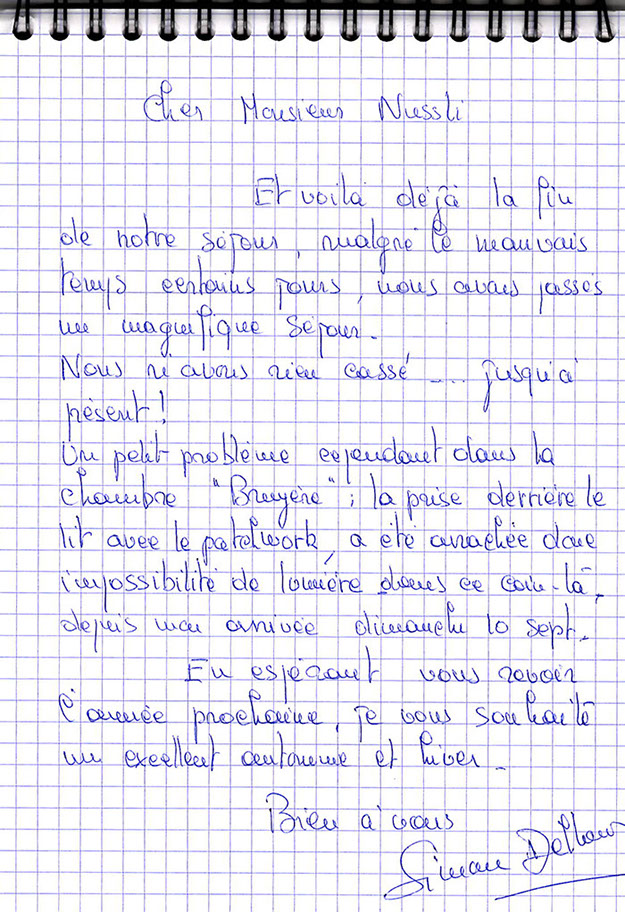 Cher Monsieur Nussli
Et voilà déjà la fin
de notre séjour, malgré le mauvais
temps certains jours, nous avons passés
un magnifique séjour.
Nous n'avons rien cassé .... jusqu'à
présent !
Un petit problème cependant dans la
chambre "Bruyère" ; la prise derrière le
lit avec le patchwork, a été arrachée donc
impossibilité de lumière dans ce coin-là,
depuis mon arrivée dimanche 10 sept.
En espérant vous revoir
l'année prochaine, je vous souhaite
un excellent automne et hiver.
Bien à vous
Simon